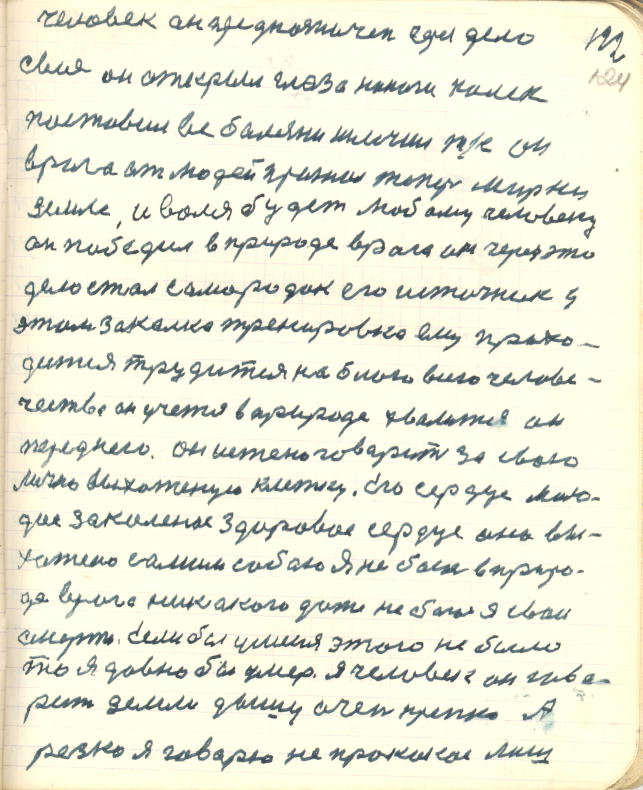 122
124
человек он предпотичен еди дело
своя он открыли глаза нашои калек
поставил
он
врага от людей прогнал теперь мирна
земле, и воля будет любому человеку
он победил в природе врага он через это
дело стал самородок его источник у
этом закалка тренировка ему прихо-
дится трудится на благо всего челове-
чества он учется в природе хвалится он
переднего. он истено говарит за свою
лично выхоженую клетку. Его сердце моло-
дое закаленое здоровое сердце оно вы-
хожено самим собаю Я не боюс в приро-
де врага никакого даже не боюс я свои
смерти. Если бы у меня этого не было
то Я довно бы умер. я человек он гова-
рит дели дышу очен крепко А
резко я говарю не прококое лищ